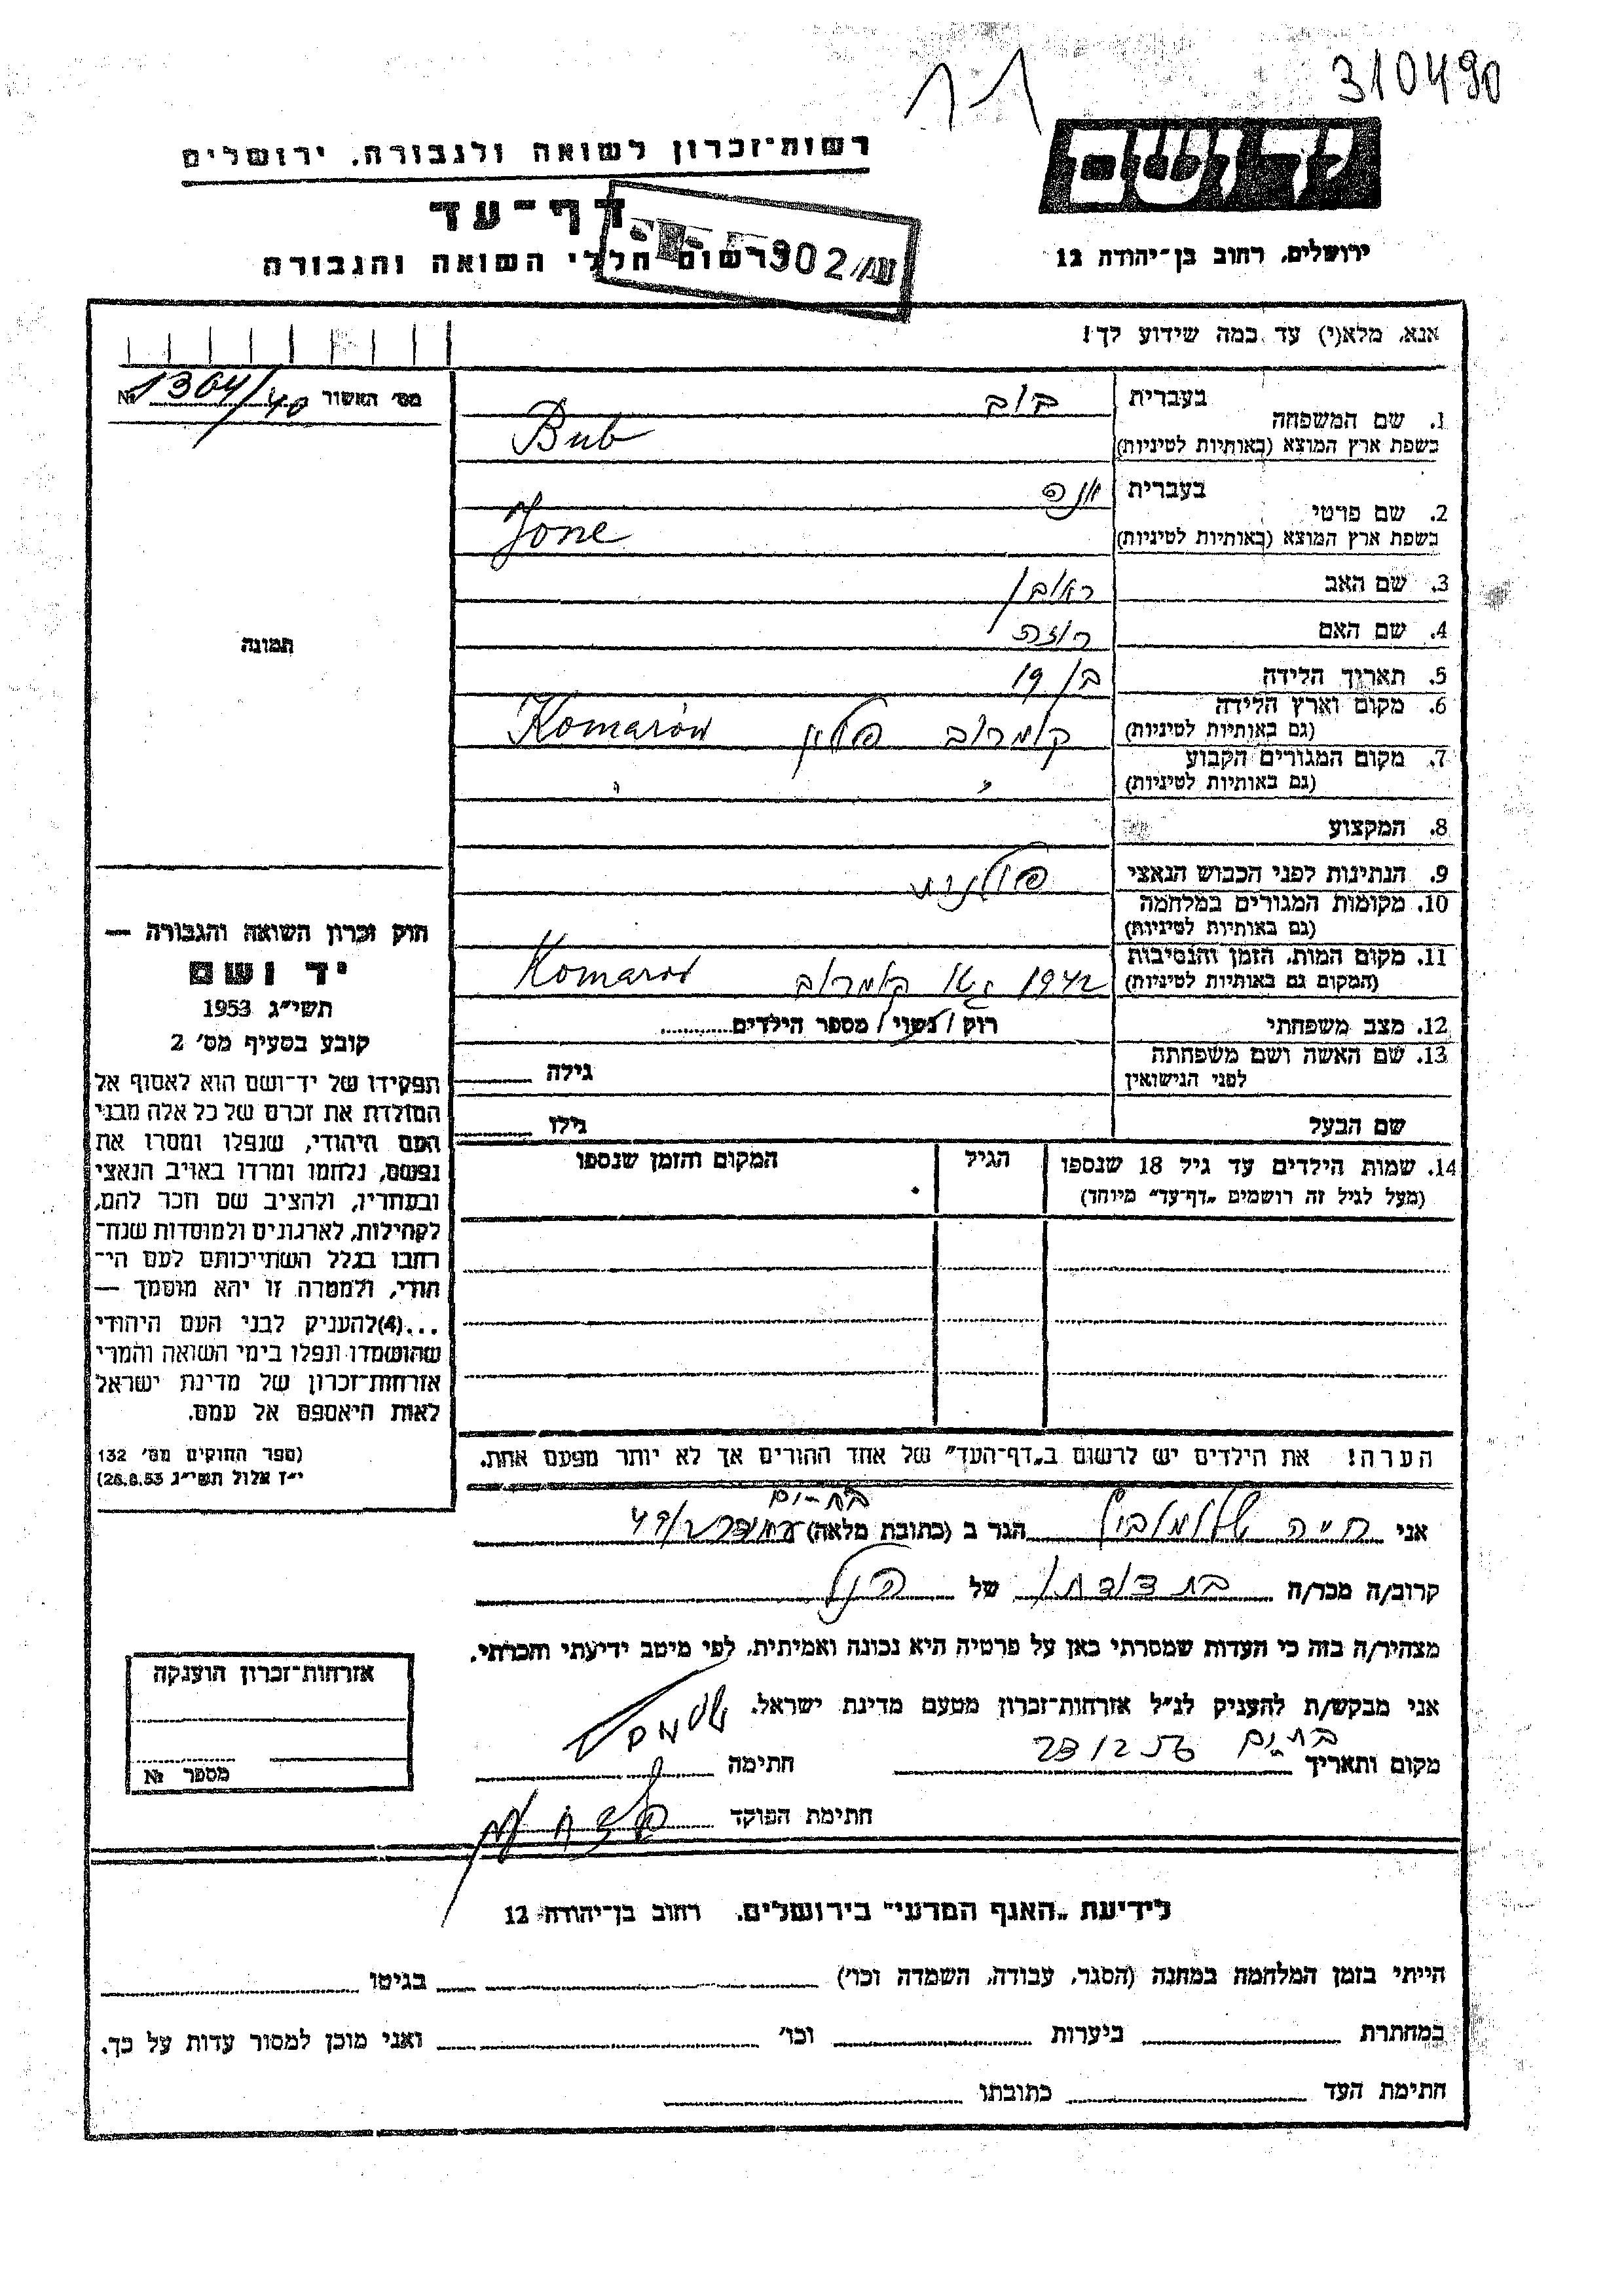 310490
רשות־זכרון לשואה ולגבורה, ירושלים
דף־עד
לרשום חללי השואה והגבורה
902
ירושלים, רחוב בן־יהודה 12
אנא, מלא(י) עד כמה שידוע לך!
מס׳ האשור 1364/40 №
1. שם המשפחה
בעברית
בוב
בשפת ארץ המוצא (באותיות לטיניות)
Bub
2. שם פרטי
בעברית
בשפת ארץ המוצא (באותיות לטיניות)
Jone
3. שם האב ראובן
4. שם האם רוזה
5. תאריך הלידה בן 19
6. מקום וארץ הלידה
(גם באותיות לטיניות)
קומרוב פולין Komarów
7. מקום המגורים הקבוע
(גם באותיות לטיניות)
״ ״
8. המקצוע
9. הנתינות לפני הכבוש הנאצי פולנית
10. מקומות המגורים במלחמה
(גם באותיות לטיניות)
11. מקום המות, הזמן והנסיבות
(המקום גם באותיות לטיניות)
1942 גטו קומרוב Komarów
12. מצב משפחתי רוק / נשוי / מספר הילדים
13. שם האשה ושם משפחתה
לפני הנישואין
גילה
שם הבעל גילו
14. שמות הילדים עד גיל 18 שנספו הגיל המקום והזמן שנספו
(מעל לגיל זה רושמים „דף־עד״ מיוחד)
הערה! את הילדים יש לרשום ב„דף־העד״ של אחד ההורים אך לא יותר מפעם אחת.
תמונה
חוק זכרון השואה והגבורה —
יד ושם
תשי״ג 1953
קובע בסעיף מס׳ 2
תפקידו של יד־ושם הוא לאסוף אל
המולדת את זכרם של כל אלה מבני
העם היהודי, שנפלו ומסרו את
נפשם, נלחמו ומרדו באויב הנאצי
ובעוזריו, ולהציב שם וזכר להם,
לקהילות, לארגונים ולמוסדות שנח־
רבו בגלל השתייכותם לעם הי־
הודי, ולמטרה זו יהא מוסמך —
...(4)להעניק לבני העם היהודי
שהושמדו ונפלו בימי השואה והמרי
אזרחות־זכרון של מדינת ישראל
לאות היאספם אל עמם.
(ספר החוקים מס׳ 132
י״ז אלול תשי״ג 28.8.53)
בת־ים
אני חיה הגר ב (כתובת מלאה)
קרוב/ה מכר/ה בת דודתו של הנ״ל
מצהיר/ה בזה כי העדות שמסרתי כאן על פרטיה היא נכונה ואמיתית, לפי מיטב ידיעתי והכרתי.
אני מבקש/ת להעניק לנ״ל אזרחות־זכרון מטעם מדינת ישראל.
מקום ותאריך בת־ים 23/2 56 חתימה
חתימת הפוקד
אזרחות־זכרון הוענקה
מספר №
לידיעת „האגף המדעי״ בירושלים, רחוב בן־יהודה 12
הייתי בזמן המלחמה במחנה (הסגר, עבודה, השמדה וכו׳) בגיטו
במחתרת ביערות וכו׳ ואני מוכן למסור עדות על כך.
חתימת העד כתובתו